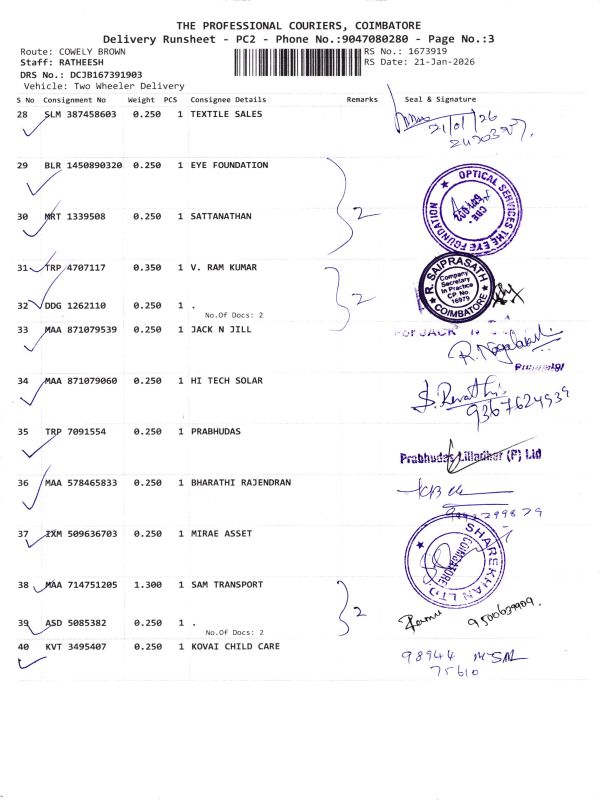 THE PROFESSIONAL COURIERS, COIMBATORE
Delivery Runsheet - PC2 - Phone No.:9047080280 - Page No.:3
Route: COWELY BROWN RS No.: 1673919
Staff: RATHEESH RS Date: 21-Jan-2026
DRS No.: DCJB167391903
Vehicle: Two Wheeler Delivery
S No Consignment No Weight PCS Consignee Details Remarks Seal & Signature
28 SLM 387458603 0.250 1 TEXTILE SALES
21/01/26
29 BLR 1450890320 0.250 1 EYE FOUNDATION
OPTICAL SERVICES THE EYE FOUNDATION
CBE
30 MRT 1339508 0.250 1 SATTANATHAN 2
31 TRP 4707117 0.350 1 V. RAM KUMAR
R. SAIPRASATH
Company
Secretary
In Practice
CP No
16979
COIMBATORE
32 DDG 1262110 0.250 1 . 2
No.Of Docs: 2
33 MAA 871079539 0.250 1 JACK N JILL
For JACK N
34 MAA 871079060 0.250 1 HI TECH SOLAR
S. Revathi
9367624939
35 TRP 7091554 0.250 1 PRABHUDAS
Prabhudas Lilladher (P) Ltd
36 MAA 578465833 0.250 1 BHARATHI RAJENDRAN
37 IXM 509636703 0.250 1 MIRAE ASSET
SHAREKHAN LTD
COIMBATORE
38 MAA 714751205 1.300 1 SAM TRANSPORT
39 ASD 5085382 0.250 1 . 2
No.Of Docs: 2
Ramu 9500639909.
40 KVT 3495407 0.250 1 KOVAI CHILD CARE
98944
75610